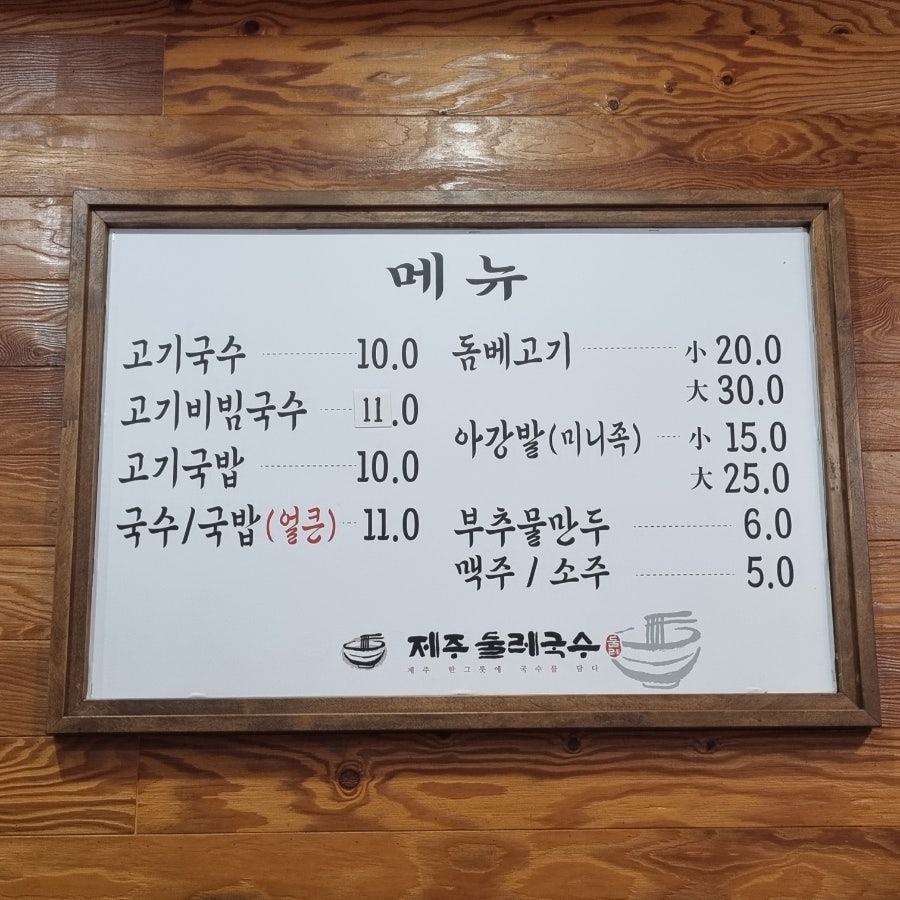 메뉴
고기국수 10.0
고기비빔국수 11.0
고기국밥 10.0
국수/국밥(얼큰) 11.0
돔베고기 小 20.0
大 30.0
아강발(미니족) 小 15.0
大 25.0
부추물만두 6.0
맥주 / 소주 5.0
제주 둘레국수
제주 한그릇에 국수를 담다